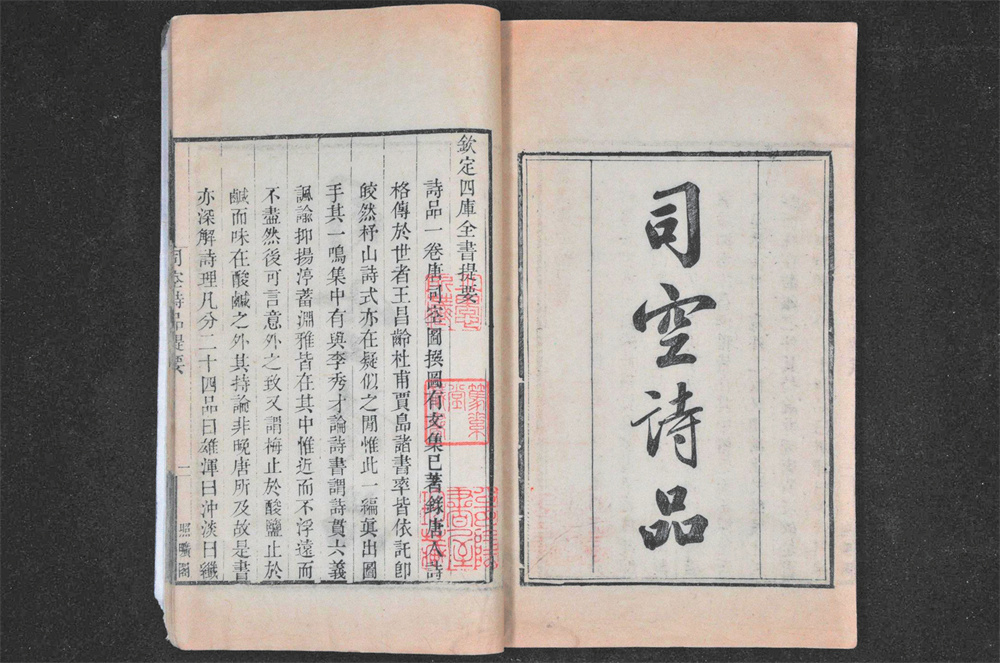 司空詩品
欽定四庫全書提要
詩品一卷唐司空圖撰圖有文集已著錄唐人詩
格傳於世者王昌齡杜甫賈島諸書率皆依託即
皎然杼山詩式亦在疑似之閒惟此一編真出圖
手其一鳴集中有與李秀才論詩書謂詩貫六義
諷諭抑揚渟蓄淵雅皆在其中惟近而不浮遠而
不盡然後可言意外之致又謂梅止於酸鹽止於
鹹而味在酸鹹之外其持論非晚唐所及故是書
亦深解詩理凡分二十四品曰雄渾曰沖淡曰纖
司空詩品提要
一
照曠閣